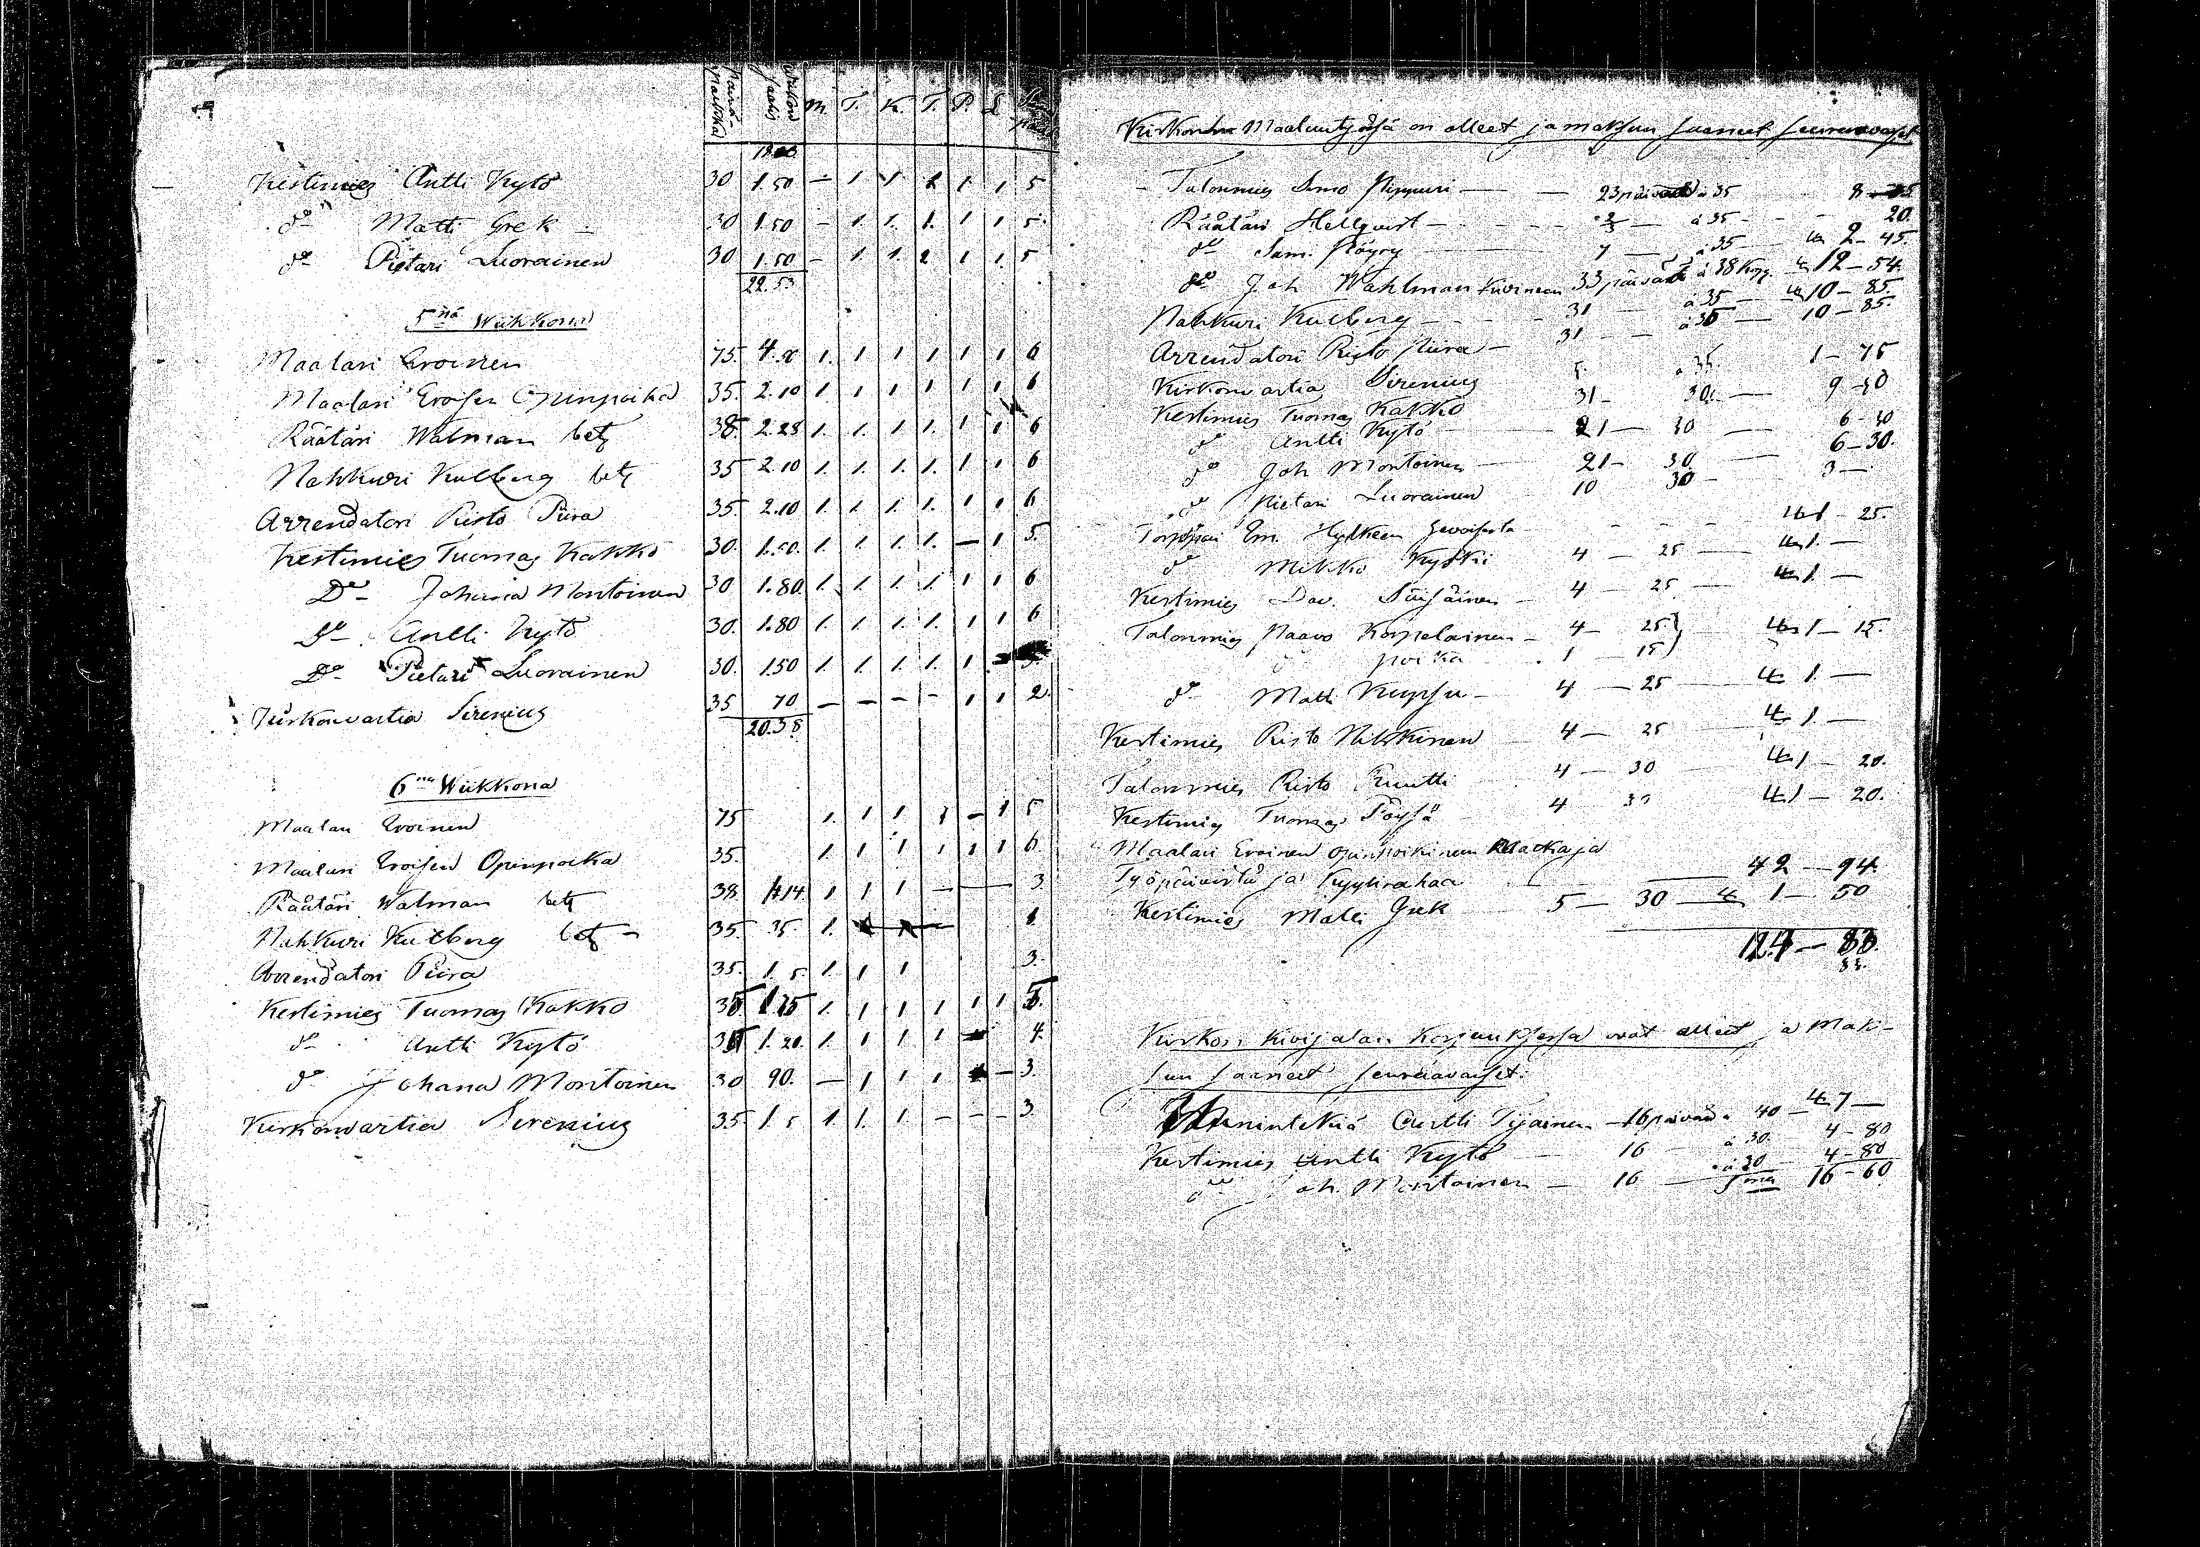 Päivä-palkka Wiikon Palk. M. T. K. T. P. L. Summa päiv.
18.03
Kestimies Antti Kytö 30 1.50 – 1 1 1 1 1 5
do Matti Grek 30 1.50 – 1. 1. 1. 1 1 5.
do Pietari Luorainen 30 1.50 – 1. 1. 1 1. 5
22.53
5na Wiikkona
Maalari Eroinen 75. 4.50 1. 1 1 1 1 1 6
Maalari Eroisen Opinpoika 35. 2.10 1. 1 1 1 1 1 6
Räätäri Walman betz 38. 2.28 1. 1. 1. 1. 1 1 6
Nahkuri Kulberg betz 35 2.10 1. 1. 1. 1. 1 1 6
Arrendatori Risto Piira 35 2.10 1. 1. 1. 1. 1 1 6
Kestimies Tuomas Kakko 30. 1.50. 1. 1. 1. 1. – 1 5.
Do Johana Montoinen 30 1.80. 1. 1. 1. 1. 1 1 6
Do Antti Kytö 30. 1.80 1. 1. 1. 1. 1 1 6
Do Pietari Luorainen 30. 1.50 1. 1. 1. 1. 1
Kirkonvartia Sirenius 35 70 – – – – 1 1 2.
20.38
6na Wiikkona
Maalari Eroinen 75 1. 1 1 1 – 1 5
Maalari Eroisen Opinpoika 35. 1. 1 1 1 1 1 6
Räätäri Walman betz 38. 1.14 1 1 1 – – – 3
Nahkuri Kulberg betz – 35. 35. 1. 1
Arrendatori Piira 35. 1. 5 1. 1 1 3.
Kestimies Tuomas Kakko 1. 1 1 1 1 1 5.
do Antti Kytö 1.20. 1. 1 1 1 4.
do Johana Montoinen 30 90. – 1 1 1 – 3.
Kirkonvartia Sirenius 35 1. 5 1 1. 1 – – – 3.
Kirkon Maaluutyösä on olleet ja maksun saaneet seuraavaiset
Talonmies Simo Pippuri – 23 päivää à 35 8 –
Räätäri Hellqvist – à 35 – 20.
do Sam. Pöyry 7 – à 35 2 – 45.
do Joh Wahlman 33 päivää à 38 Kop. 12 – 54.
Nahkuri Kulberg – 31 – à 35 – 10 – 85.
Arrendatori Risto Piira – 31 – à 35 – 10 – 85.
Kirkonvartia Sirenius 5. à 35. 1 – 75
Kestimies Tuomas Kakko 31 – 30. – 9 – 30
do Antti Kytö 21 – 30 – 6 – 30
do Joh Montoinen 21 – 30 – 6 – 30.
do Pietari Luorainen 10 30 – 3 –
Torppari Em. 1 – 25.
do Mikko 4 – 25 – 1. –
Kestimies Dav. 4 – 25 – 1 –
Talonmies Paavo Korpelainen – 4 – 25
poika 1 – 15 1 – 15.
do Matti – 4 – 25 1. –
Kestimies Risto Nikkinen 4 – 25 1 –
Talonmies Risto 4 – 30 1 – 20.
Kestimies Tuomas Pöysä 4 30 1 – 20.
Maalari Eroinen opinpoikineen Matka ja
Työpäivistä ja Kyytirahaa – 42 – 94.
Kestimies Matti Grek 5 – 30 – 1 – 50
Kirkon Kivijalan Korjuutyösä ovat olleet ja Mak-
sun saaneet seuraavaiset.
Antti Tijainen – 16 päivää à 40 – 7 –
Kestimies Antti Kytö – 16 – à 30. 4 – 80
do Joh. Montoinen – 16 – à 30 4 – 80
Sma 16 – 60